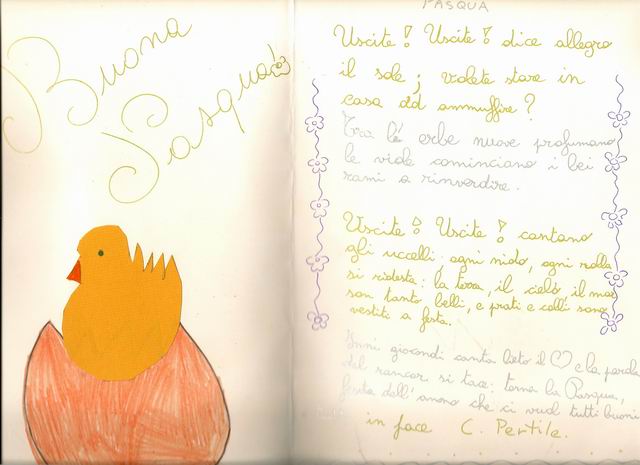 Buona
Pasqua!
PASQUA
Uscite! Uscite! dice allegro
il sole; volete stare in
casa ad ammuffire?
Tra le erbe nuove profumano
le viole cominciano i bei
rami a rinverdire.
Uscite! Uscite! cantano
gli uccelli: ogni nido, ogni zolla
si ridesta: la terra, il cielo, il mar
son tanto belli, e prati e colli sono
vestiti a festa.
Inni giocondi canta lieto il ♡ e la parola
del rancor si tace: torna la Pasqua,
festa dell'amore che ci vuol tutti buoni
in pace C. Pertile.